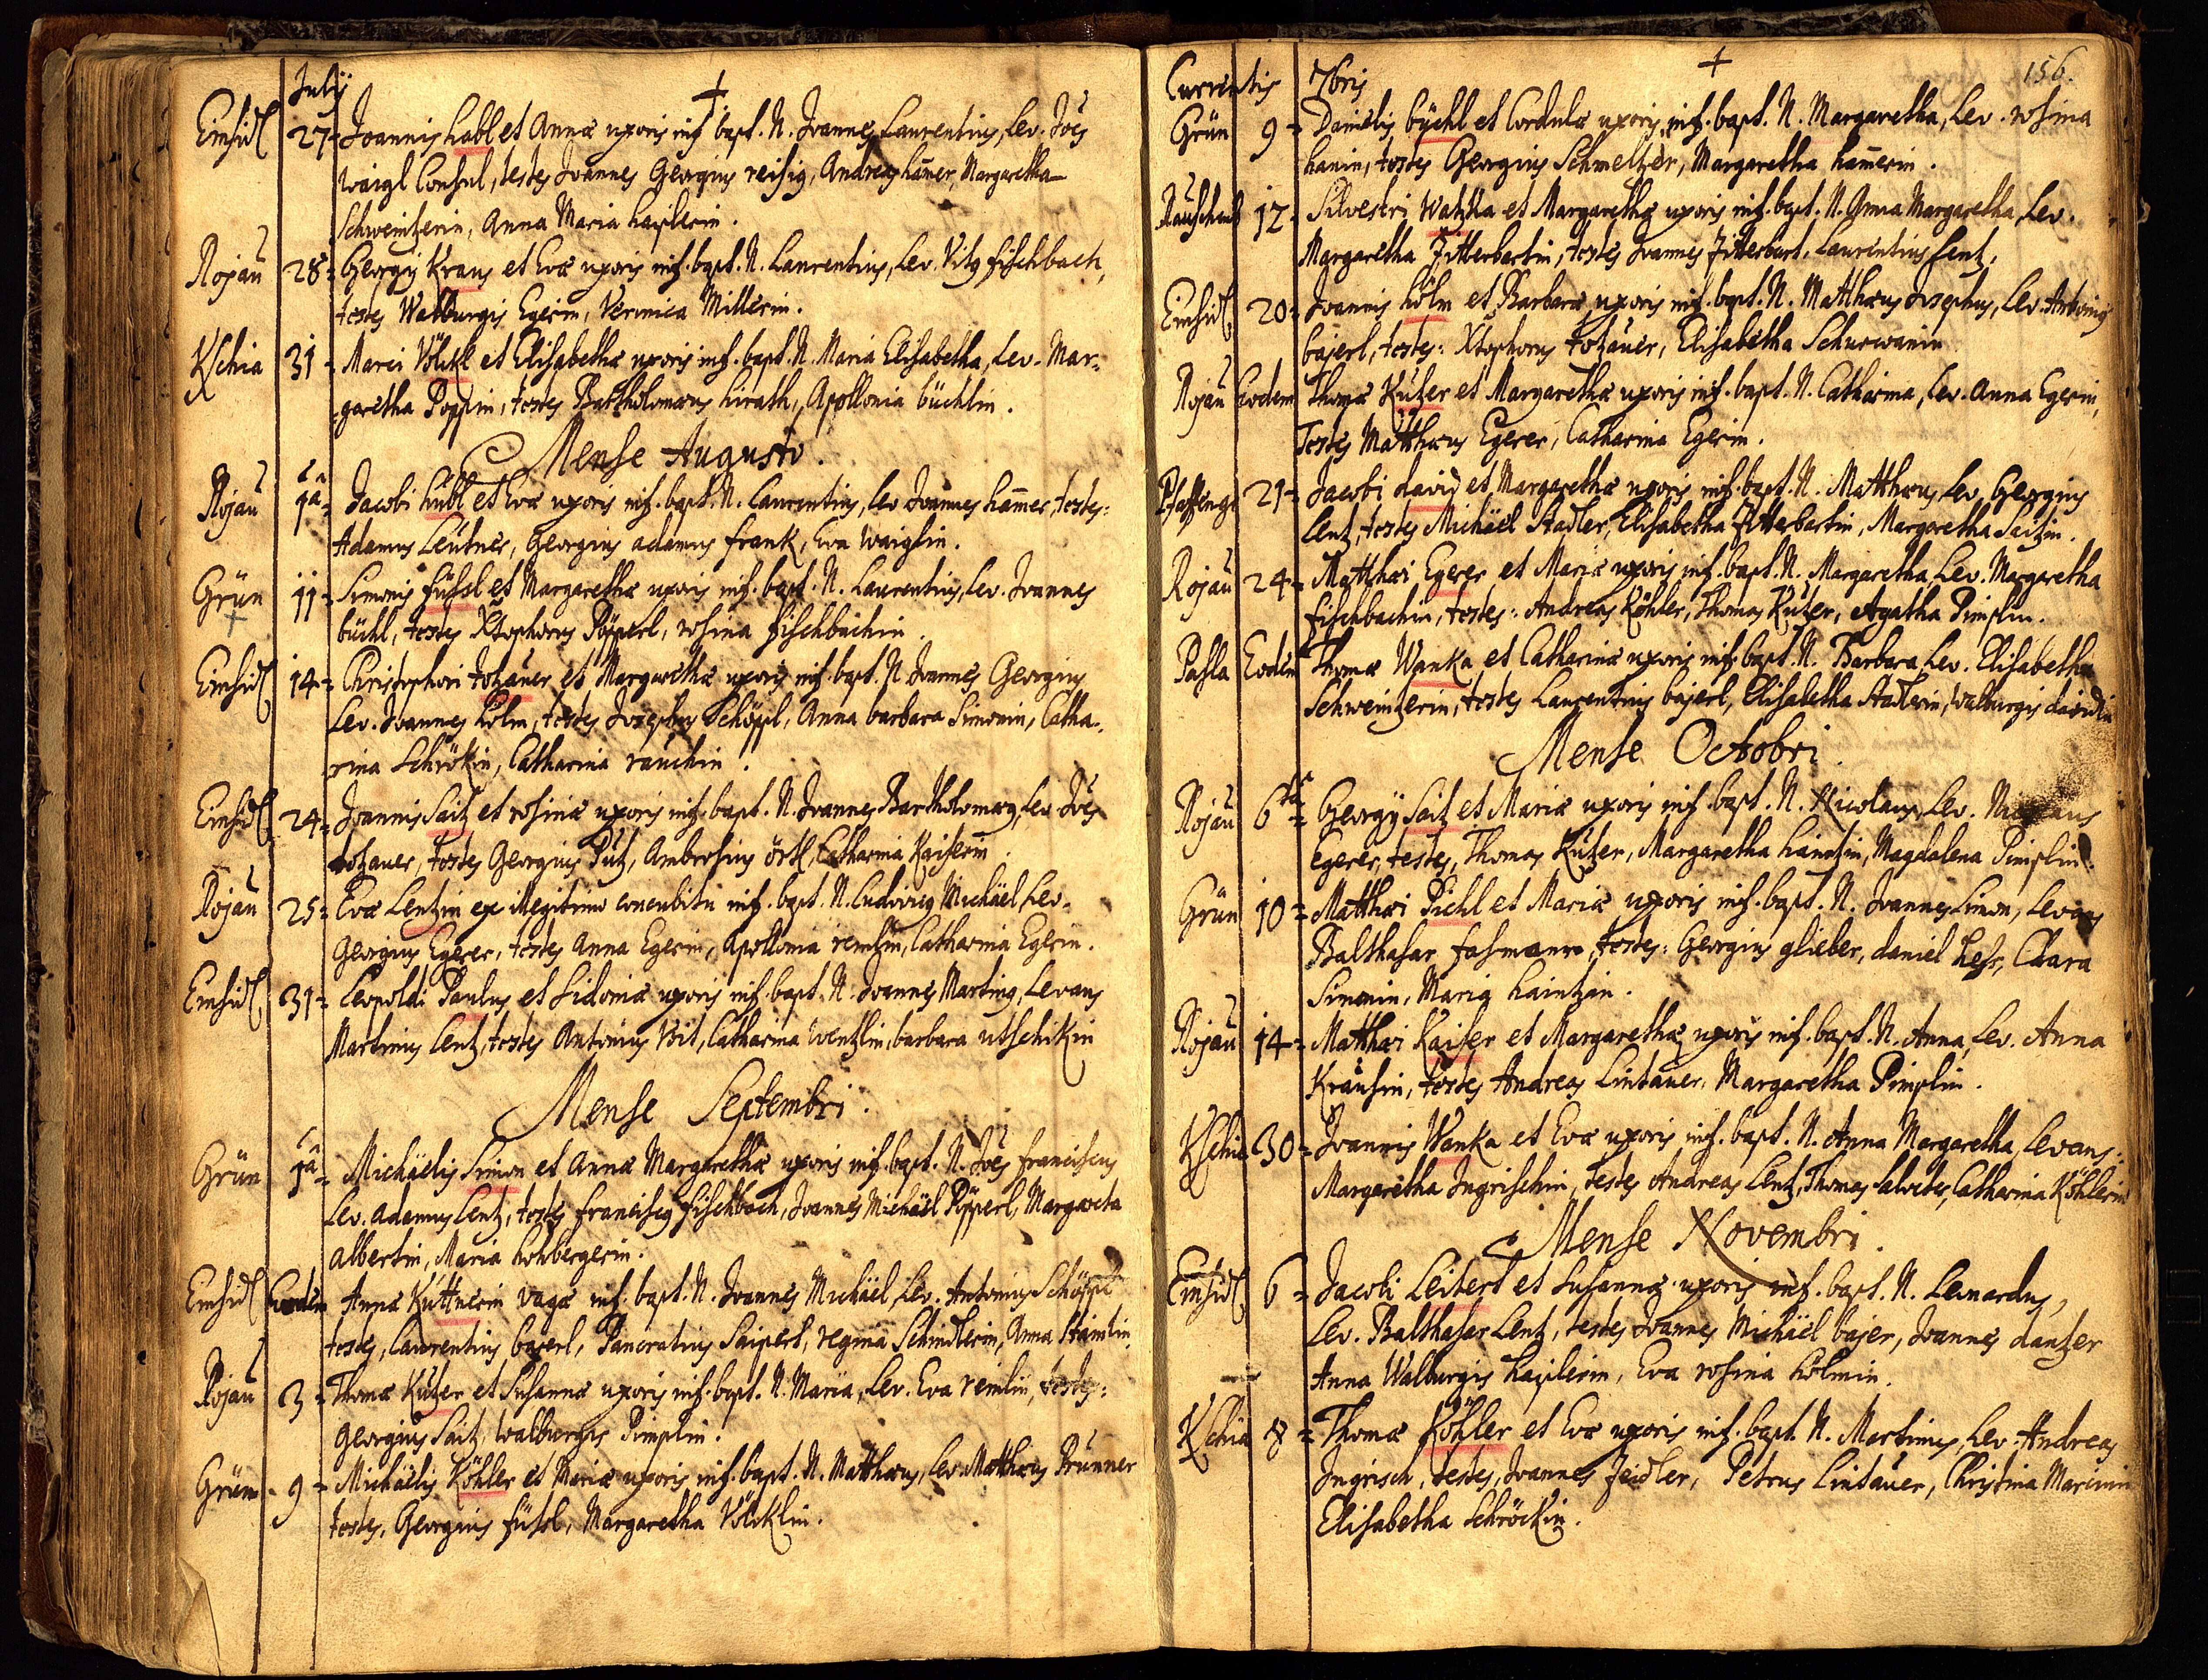 July
Einsidl 27 = Joannis habl et Annæ uxoris inf. bapt. N. Joannes Laurentius, Lev. Joës
Waigl Consul, testes Joannes Georgius reisig, Andreas ham̄er, Margaretha
Schweintzerin, Anna Maria haislerin.
Rojau 28 = Georgÿ Kraus et Evæ uxoris inf. bapt. N. Laurentius, Lev. Vitg fischbach,
testes Walburgis Egerin, Veronica Millerin.
Kschia 31 = Marci Völckl et Elisabethæ uxoris inf. bapt. N. Maria Elisabetha, Lev. Mar=
garetha Poppin, testes Bartholomæus hirath, Apollonia büchlin.
Mense Augusto.
Rojau 1â = Jacobi hübl et Evæ uxoris inf. bapt. N. Laurentius, Lev Joannes ham̄er, testes:
Adamus Leütner, Georgius adamus frank, Eva Waiglin.
Grün 11 = Simonis füssl et Margarethæ uxoris inf. bapt. N. Laurentius, Lev. Joannes
büchl, testes Xtophorus Pöpperl, rosina fischbachin.
Einsidl 14 = Christophori totzauer et Margarethæ uxoris inf. bapt. N. Joannes Georgius
Lev. Joannes Kölm, testes Josephus Schöppl, Anna barbara Simonin, Catha=
rina Schrökin, Catharina rauchin.
Einsidl 24 = Joannis Saitz et rosinæ uxoris inf. bapt. N. Joannes Bartholomæg, Lev Joës
totzauer, testes Georgius Pütz, Ambrosius örtl, Catharina Kaiserin.
Rojau 25 = Evæ Lentzin ex illegitimo concubitu inf. bapt. N. Ludovicg Michäel, Lev.
Georgius Egerer, testes Anna Egerin, Apollonia remlin, Catharina Egerin.
Einsidl 31 = Leopoldi Paulus et Sidoniæ uxoris inf. bapt. N. Joannes Marting, Levans
Martinus Lentz, testes Antonius Vsit, Catharina Wentzlin, barbara utschikin
Mense Septembri.
Grün 1â = Michäelis Simon et Annæ Margarethæ uxoris inf. bapt. N. Joës franciscus
Lev. Adamus Lentz, testes franciscg fischbach, Joannes Michäel Pöpperl, Margareta
albertin, Maria hohbergerin.
Einsidl Eodem Annæ Küttnerin vagæ inf. bapt. N. Joannes Michäel, Lev. Antonius Schöppl
testes, Laurentius bajerl, Pancratius Saiperl, regina Schindlerin, Anna Haintin.
Rojau 3 = Thomæ Kutzer et Susannæ uxoris inf. bapt. N. Maria, Lev. Eva remlin, testes:
Georgius Saitz, walburgis Pimplin.
Grün 9 = Michäelis Köhler et Mariæ uxoris inf. bapt. N. Matthæus, Lev. Matthæus Prunner
testes, Georgius füssl, Margaretha Völcklin.
Currentis 7bris 156.
Grün 9 = Danielis büchl et Cordulæ uxoris inf. bapt. N. Margaretha, Lev. rosina
hanin, testes Georgius Schmeltzer, Margaretha ham̄erin.
Rauschenb 12 = Silvestri Watzka et Margarethæ uxoris inf. bapt. N. Anna Margaretha, Lev.
Margaretha Zitterbartin, testes Joannes Zitterbart, Laurentius Lentz.
Einsidl 20 = Joannis hölm et Barbaræ uxoris inf. bapt. N. Matthæus Josephus, Lev. Antonius
bajerl, testes: Xtophorus totzauer, Elisabetha Schurwanin
Rojau Eodem Thomæ Kutzer et Margarethæ uxoris inf. bapt. N. Catharina, Lev. Anna Egerin,
Testes Matthæus Egerer, Catharina Egerin.
Pfaffengr 21 = Jacobi david et Margarethæ uxoris inf. bapt. N. Matthæus, Lev. Georgius
Lentz, testes Michäel Stadler, Elisabetha Zitterbartin, Margaretha Saitzin.
Rojau 24 = Matthæi Egerer et Mariæ uxoris inf. bapt. N. Margaretha, Lev. Margaretha
fischbachin, testes: Andreas Köhler, Thomas Kutzer, Agatha Pimplin.
Pasla Eodem Thomæ Wanka et Catharinæ uxoris inf. bapt. N. Barbara, Lev. Elisabetha
Schweintzerin, testes Laurentius bajerl, Elisabetha Stadlerin, walburgis davidin
Mense Octobri.
Rojau 6ta = Georgÿ Saitz et Mariæ uxoris inf. bapt. N. Nicolaus, Lev.
Egerer, testes, Thomas Kutzer, Margaretha haintzin, Magdalena Pimplin.
Grün 10 = Matthæi Pichl et Mariæ uxoris inf. bapt. N. Joannes Simon, Levans
Balthasar fasmann, testes: Georgius glieber, daniel hess, Clara
Simonin, Maria haintzin.
Rojau 14 = Matthæi Kaiser et Margarethæ uxoris inf. bapt. N. Anna, Lev. Anna
Krausin, testes Andreas Lintauer, Margaretha Pimplin.
Kschia 30 = Joannis Wanka et Evæ uxoris inf. bapt. N. Anna Margaretha, Levans:
Margaretha Ingrischin, Testes Andreas Lentz, Thomas Salveter, Catharina Köhlerin
Mense Novembri.
Einsidl 6 = Jacobi Leitert et Susannæ uxoris inf. bapt. N. Leonardus,
Lev. Balthasar Lentz, testes Joannes Michäel bajer, Joannes dantzer
Anna Walburgis haislerin, Eva rosina hölmin.
Kschia 8 = Thomæ Köhler et Evæ uxoris inf. bapt. N. Martinus, Lev. Andreas
Ingrisch, testes, Joannes Zeidler, Petrus Lintauer, Christina Marxin
Elisabetha Schröckin.